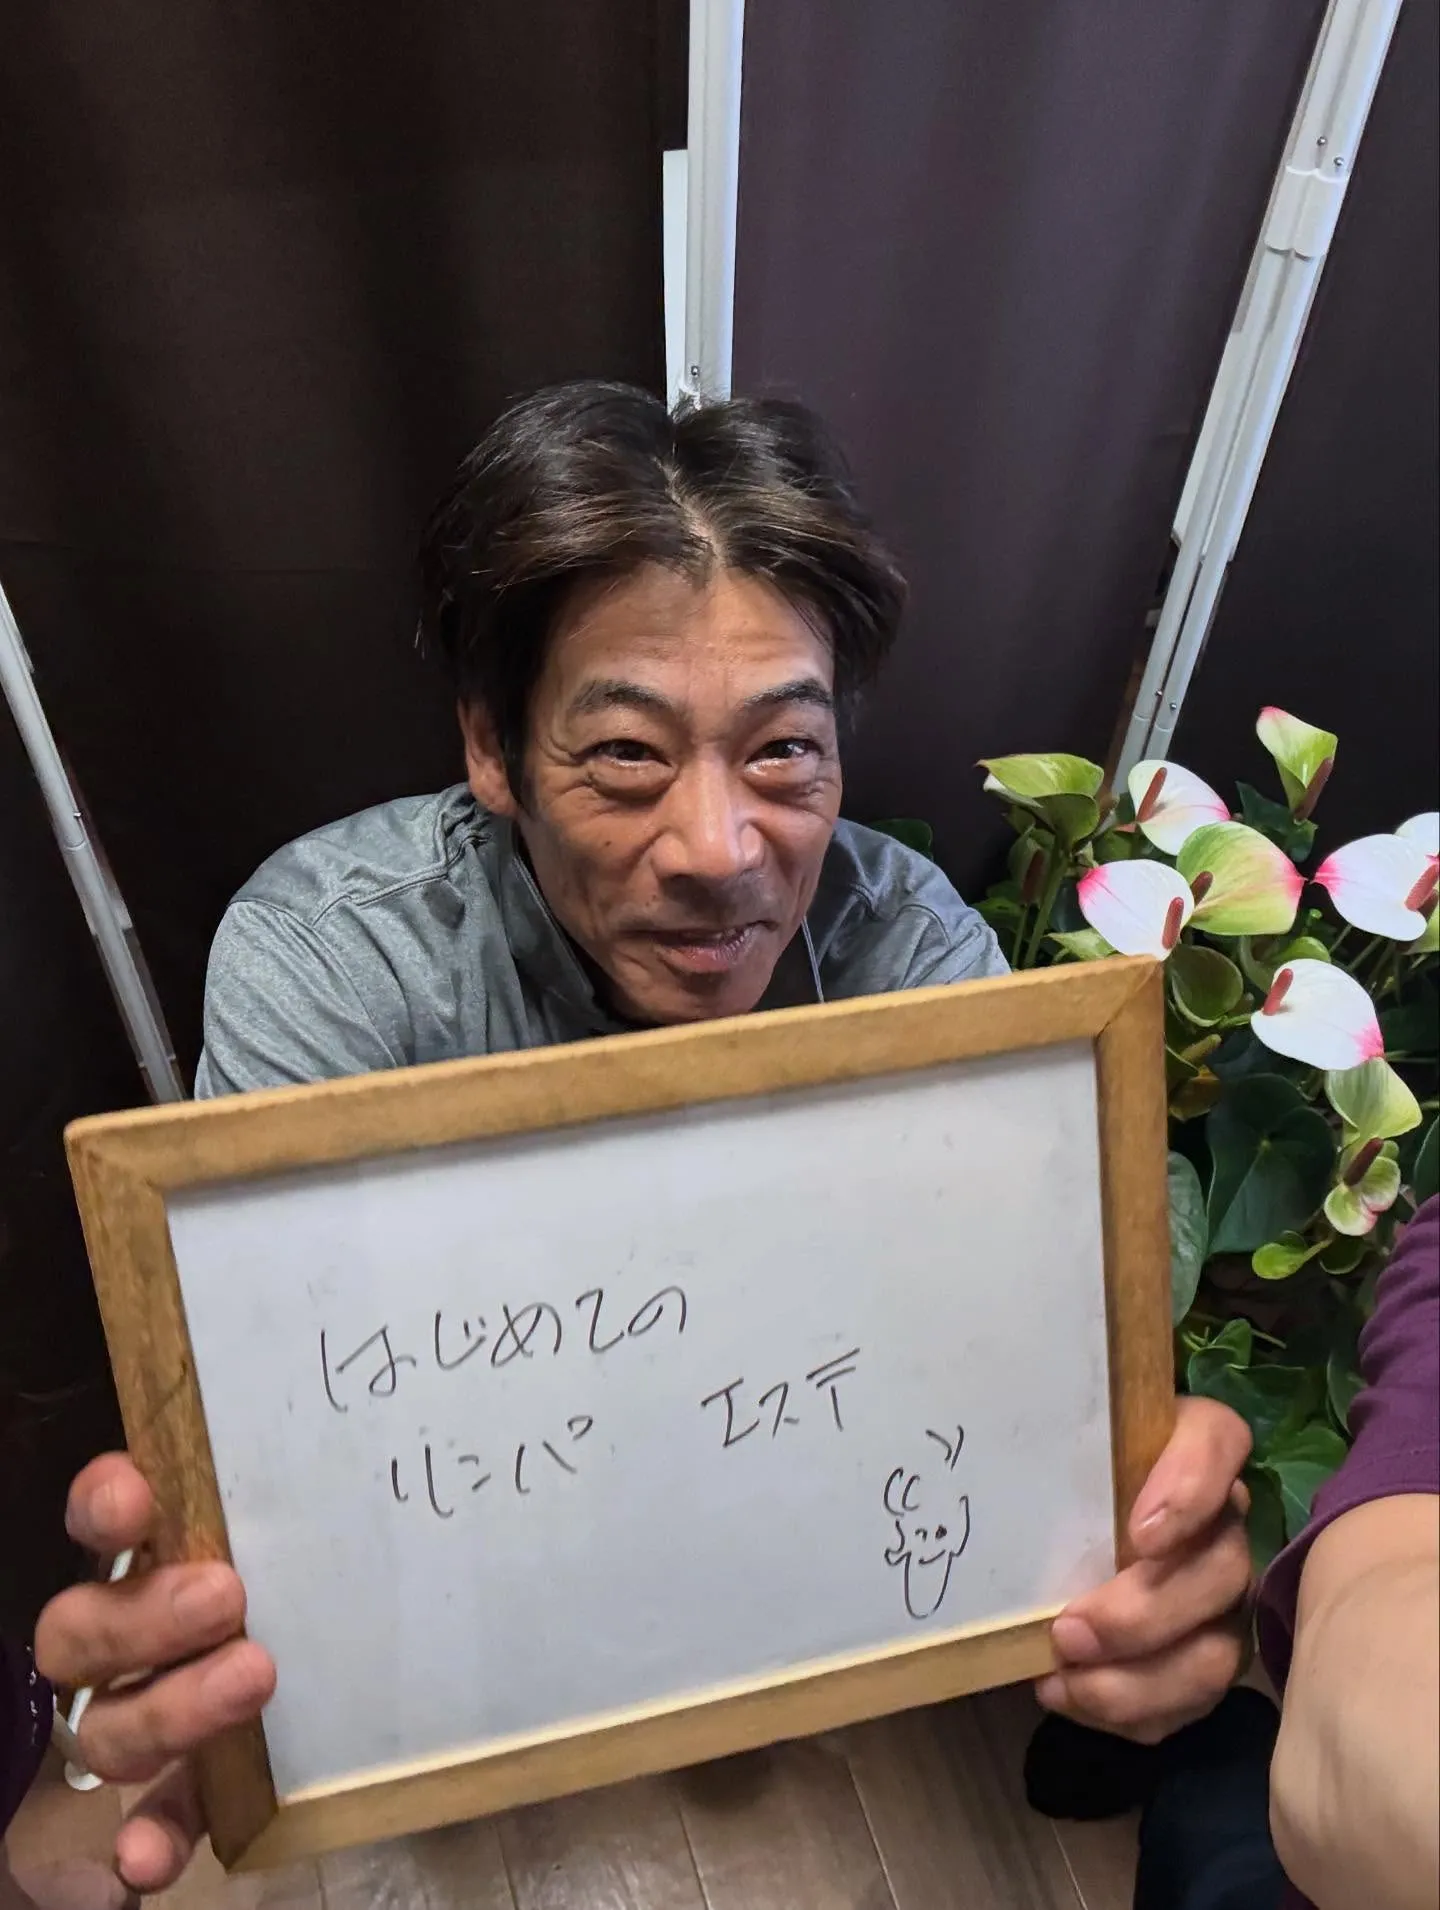 はじめての
リンパ エステ